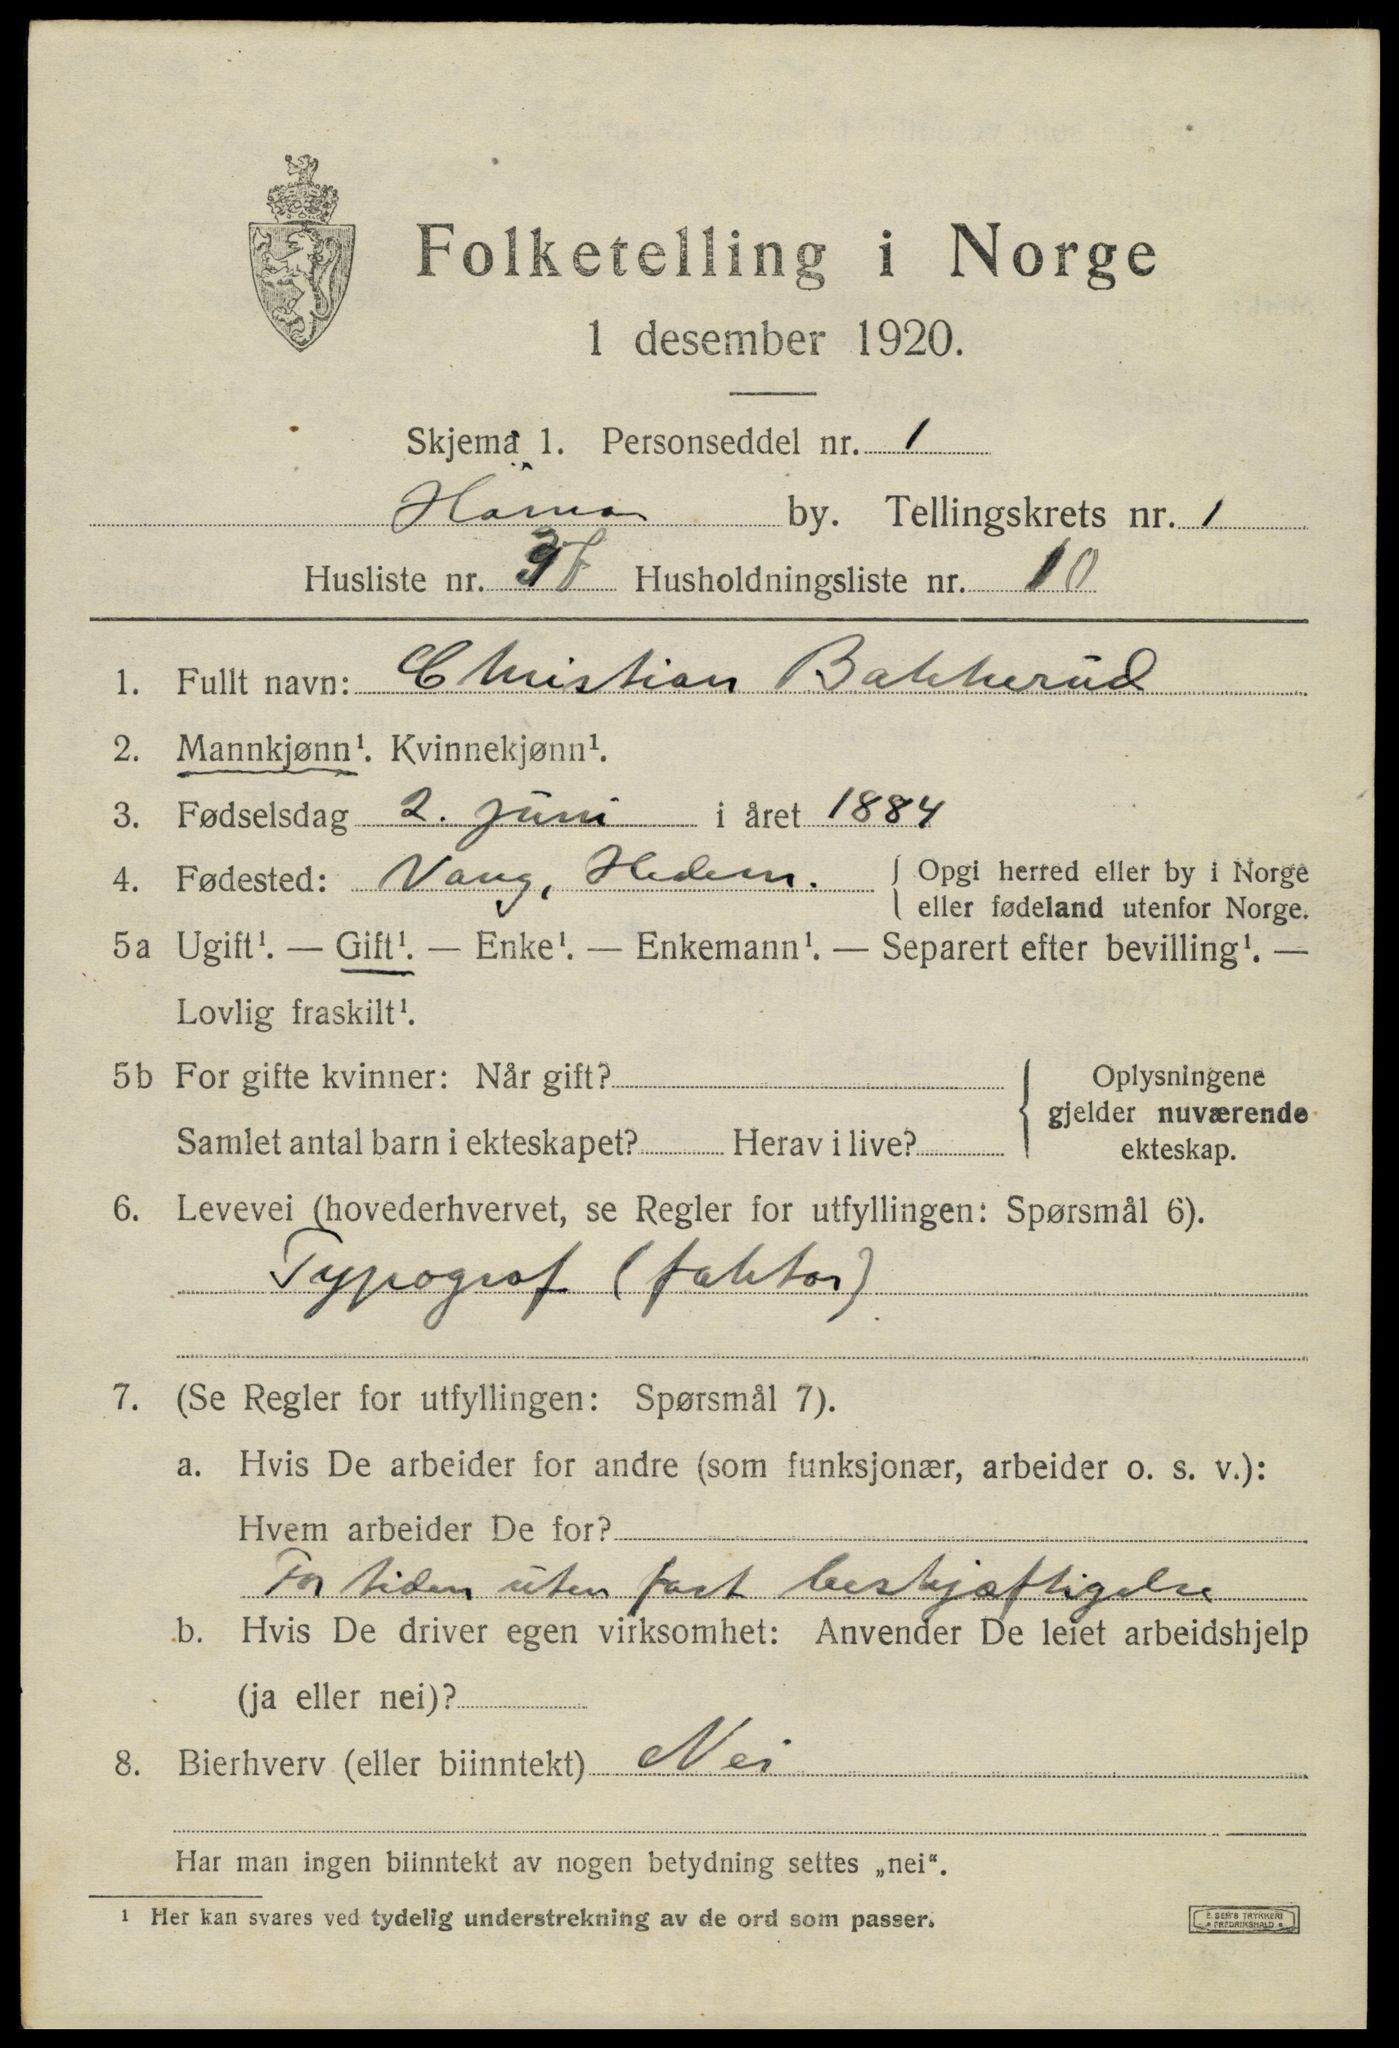 Folketelling i Norge
1 desember 1920.
Skjema 1. Personseddel nr. 1
Hamar by. Tellingskrets nr. 1
Husliste nr. Husholdningsliste nr. 10
1. Fullt navn: Christian Bakkerud
2. Mannkjønn¹. Kvinnekjønn¹.
3. Fødselsdag 2. juni i året 1884
4. Fødested: Vang, Hedem. { Opgi herred eller by i Norge
eller fødeland utenfor Norge.
5a Ugift¹. — Gift¹. — Enke¹. — Enkemann¹. — Separert efter bevilling¹. —
Lovlig fraskilt¹.
5b For gifte kvinner: Når gift?
Samlet antal barn i ekteskapet? Herav i live?
{ Oplysningene
gjelder nuværende
ekteskap.
6. Levevei (hovederhvervet, se Regler for utfyllingen: Spørsmål 6).
Typograf (faktor)
7. (Se Regler for utfyllingen: Spørsmål 7).
a. Hvis De arbeider for andre (som funksjonær, arbeider o. s. v.):
Hvem arbeider De for?
For tiden uten fast beskjæftigelse
b. Hvis De driver egen virksomhet: Anvender De leiet arbeidshjelp
(ja eller nei)?
8. Bierhverv (eller biinntekt) Nei
Har man ingen biinntekt av nogen betydning settes „nei“.
¹ Her kan svares ved tydelig understrekning av de ord som passer.
E. SEM'S TRYKKERI
FREDRIKSHALD